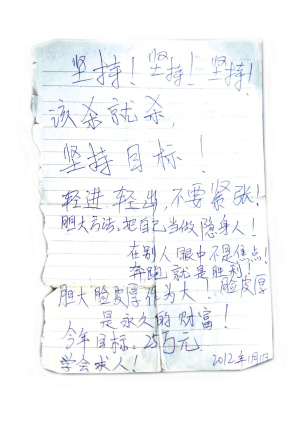 坚持！坚持！坚持！
该杀就杀,
坚持目标！
轻进轻出,不要紧张！
胆大方法:把自己当做隐身人！
在别人眼中不是焦点！
奔跑就是胜利！
胆大脸皮厚作为大！脸皮厚
是永久的财富！
今年目标:25万元
学会求人！
2012年1月1日